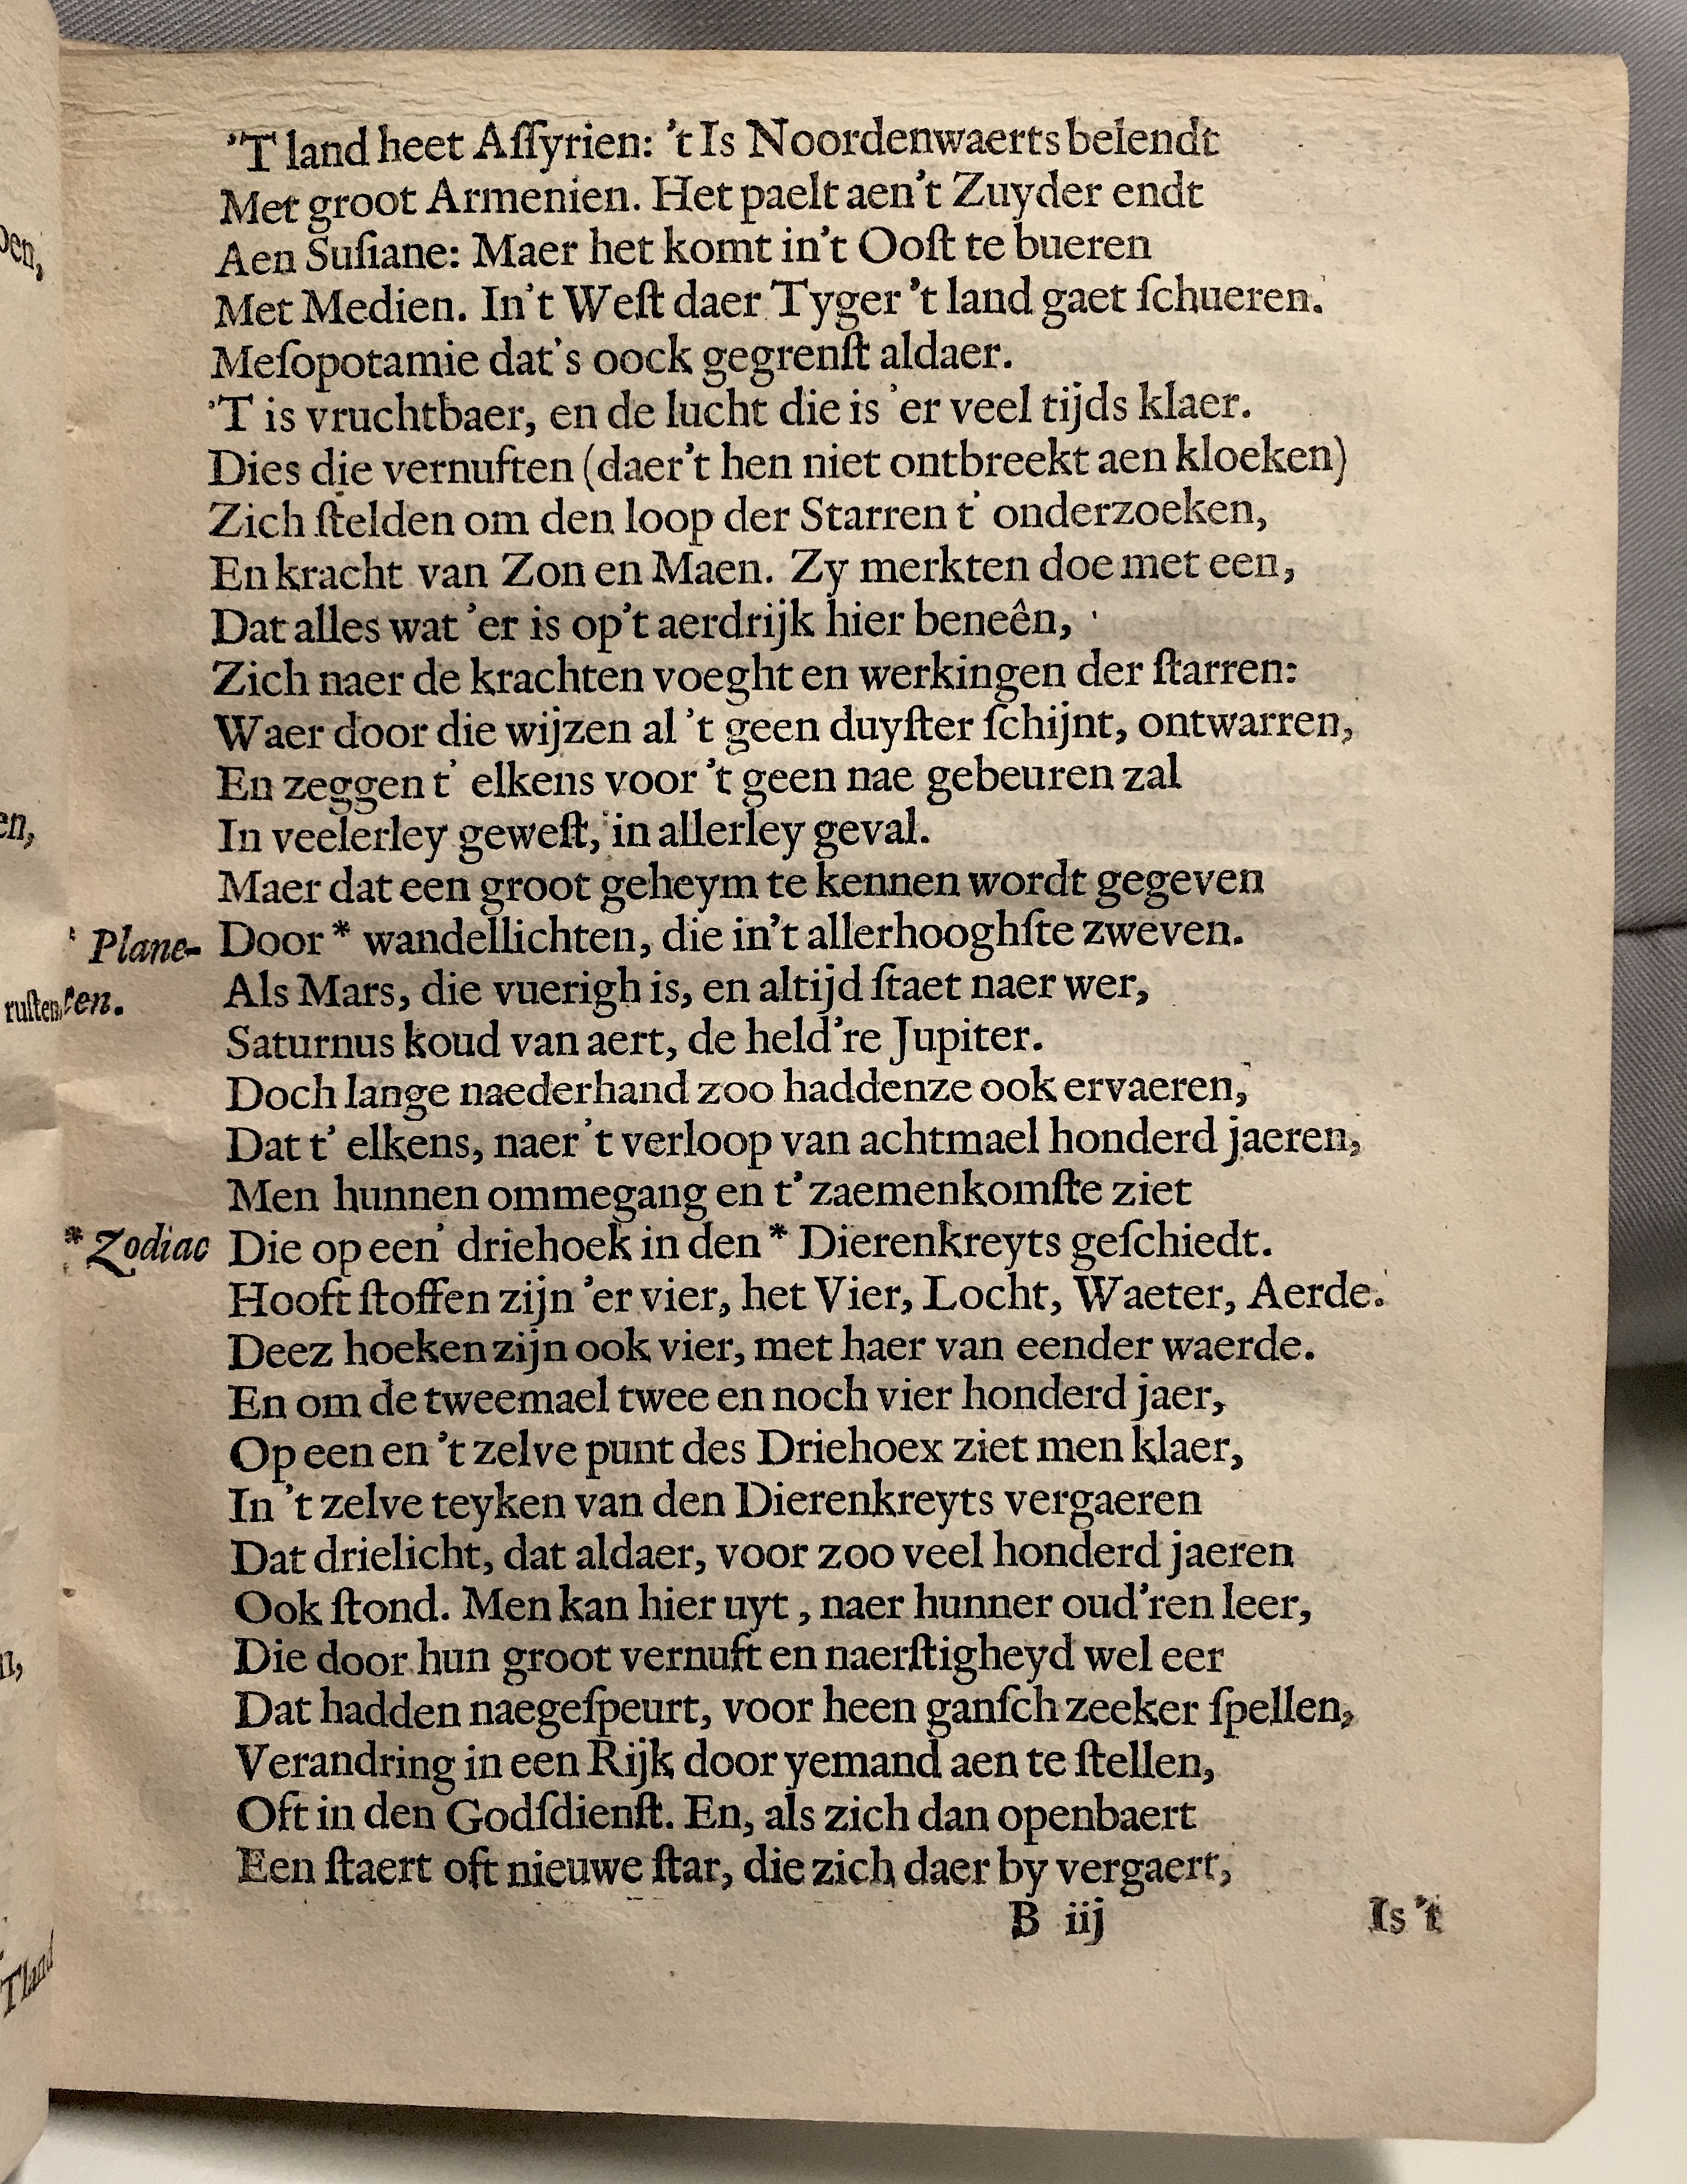 'T land heet Aſſyrien: 't Is Noordenwaerts belendt
Met groot Armenien. Het paelt aen't Zuyder endt
Aen Suſiane: Maer het komt in't Ooſt te bueren
Met Medien. In't Weſt daer Tyger 't land gaet ſchueren.
Meſopotamie dat's oock gegrenſt aldaer.
'T is vruchtbaer, en de lucht die is 'er veel tijds klaer.
Dies die vernuften (daer't hen niet ontbreekt aen kloeken)
Zich ſtelden om den loop der Starren t' onderzoeken,
En kracht van Zon en Maen. Zy merkten doe met een,
Dat alles wat 'er is op't aerdrijk hier beneên,
Zich naer de krachten voeght en werkingen der ſtarren:
Waer door die wijzen al 't geen duyſter ſchijnt, ontwarren,
En zeggen t' elkens voor 't geen nae gebeuren zal
In veelerley geweſt, in allerley geval.
Maer dat een groot geheym te kennen wordt gegeven
* Plane- Door * wandellichten, die in't allerhooghſte zweven.
ten. Als Mars, die vuerigh is, en altijd ſtaet naer wer,
Saturnus koud van aert, de held're Jupiter.
Doch lange naederhand zoo haddenze ook ervaeren,
Dat t' elkens, naer 't verloop van achtmael honderd jaeren,
Men hunnen ommegang en t' zaemenkomſte ziet
* Zodiac Die op een' driehoek in den * Dierenkreyts geſchiedt.
Hooft ſtoffen zijn 'er vier, het Vier, Locht, Waeter, Aerde.
Deez hoeken zijn ook vier, met haer van eender waerde.
En om de tweemael twee en noch vier honderd jaer,
Op een en 't zelve punt des Driehoex ziet men klaer,
In 't zelve teyken van den Dierenkreyts vergaeren
Dat drielicht, dat aldaer, voor zoo veel honderd jaeren
Ook ſtond. Men kan hier uyt, naer hunner oud'ren leer,
Die door hun groot vernuft en naerſtigheyd wel eer
Dat hadden naegeſpeurt, voor heen ganſch zeeker ſpellen,
Verandring in een Rijk door yemand aen te ſtellen,
Oft in den Godſdienſt. En, als zich dan openbaert
Een ſtaert oft nieuwe ſtar, die zich daer by vergaert,
B iij Is 't